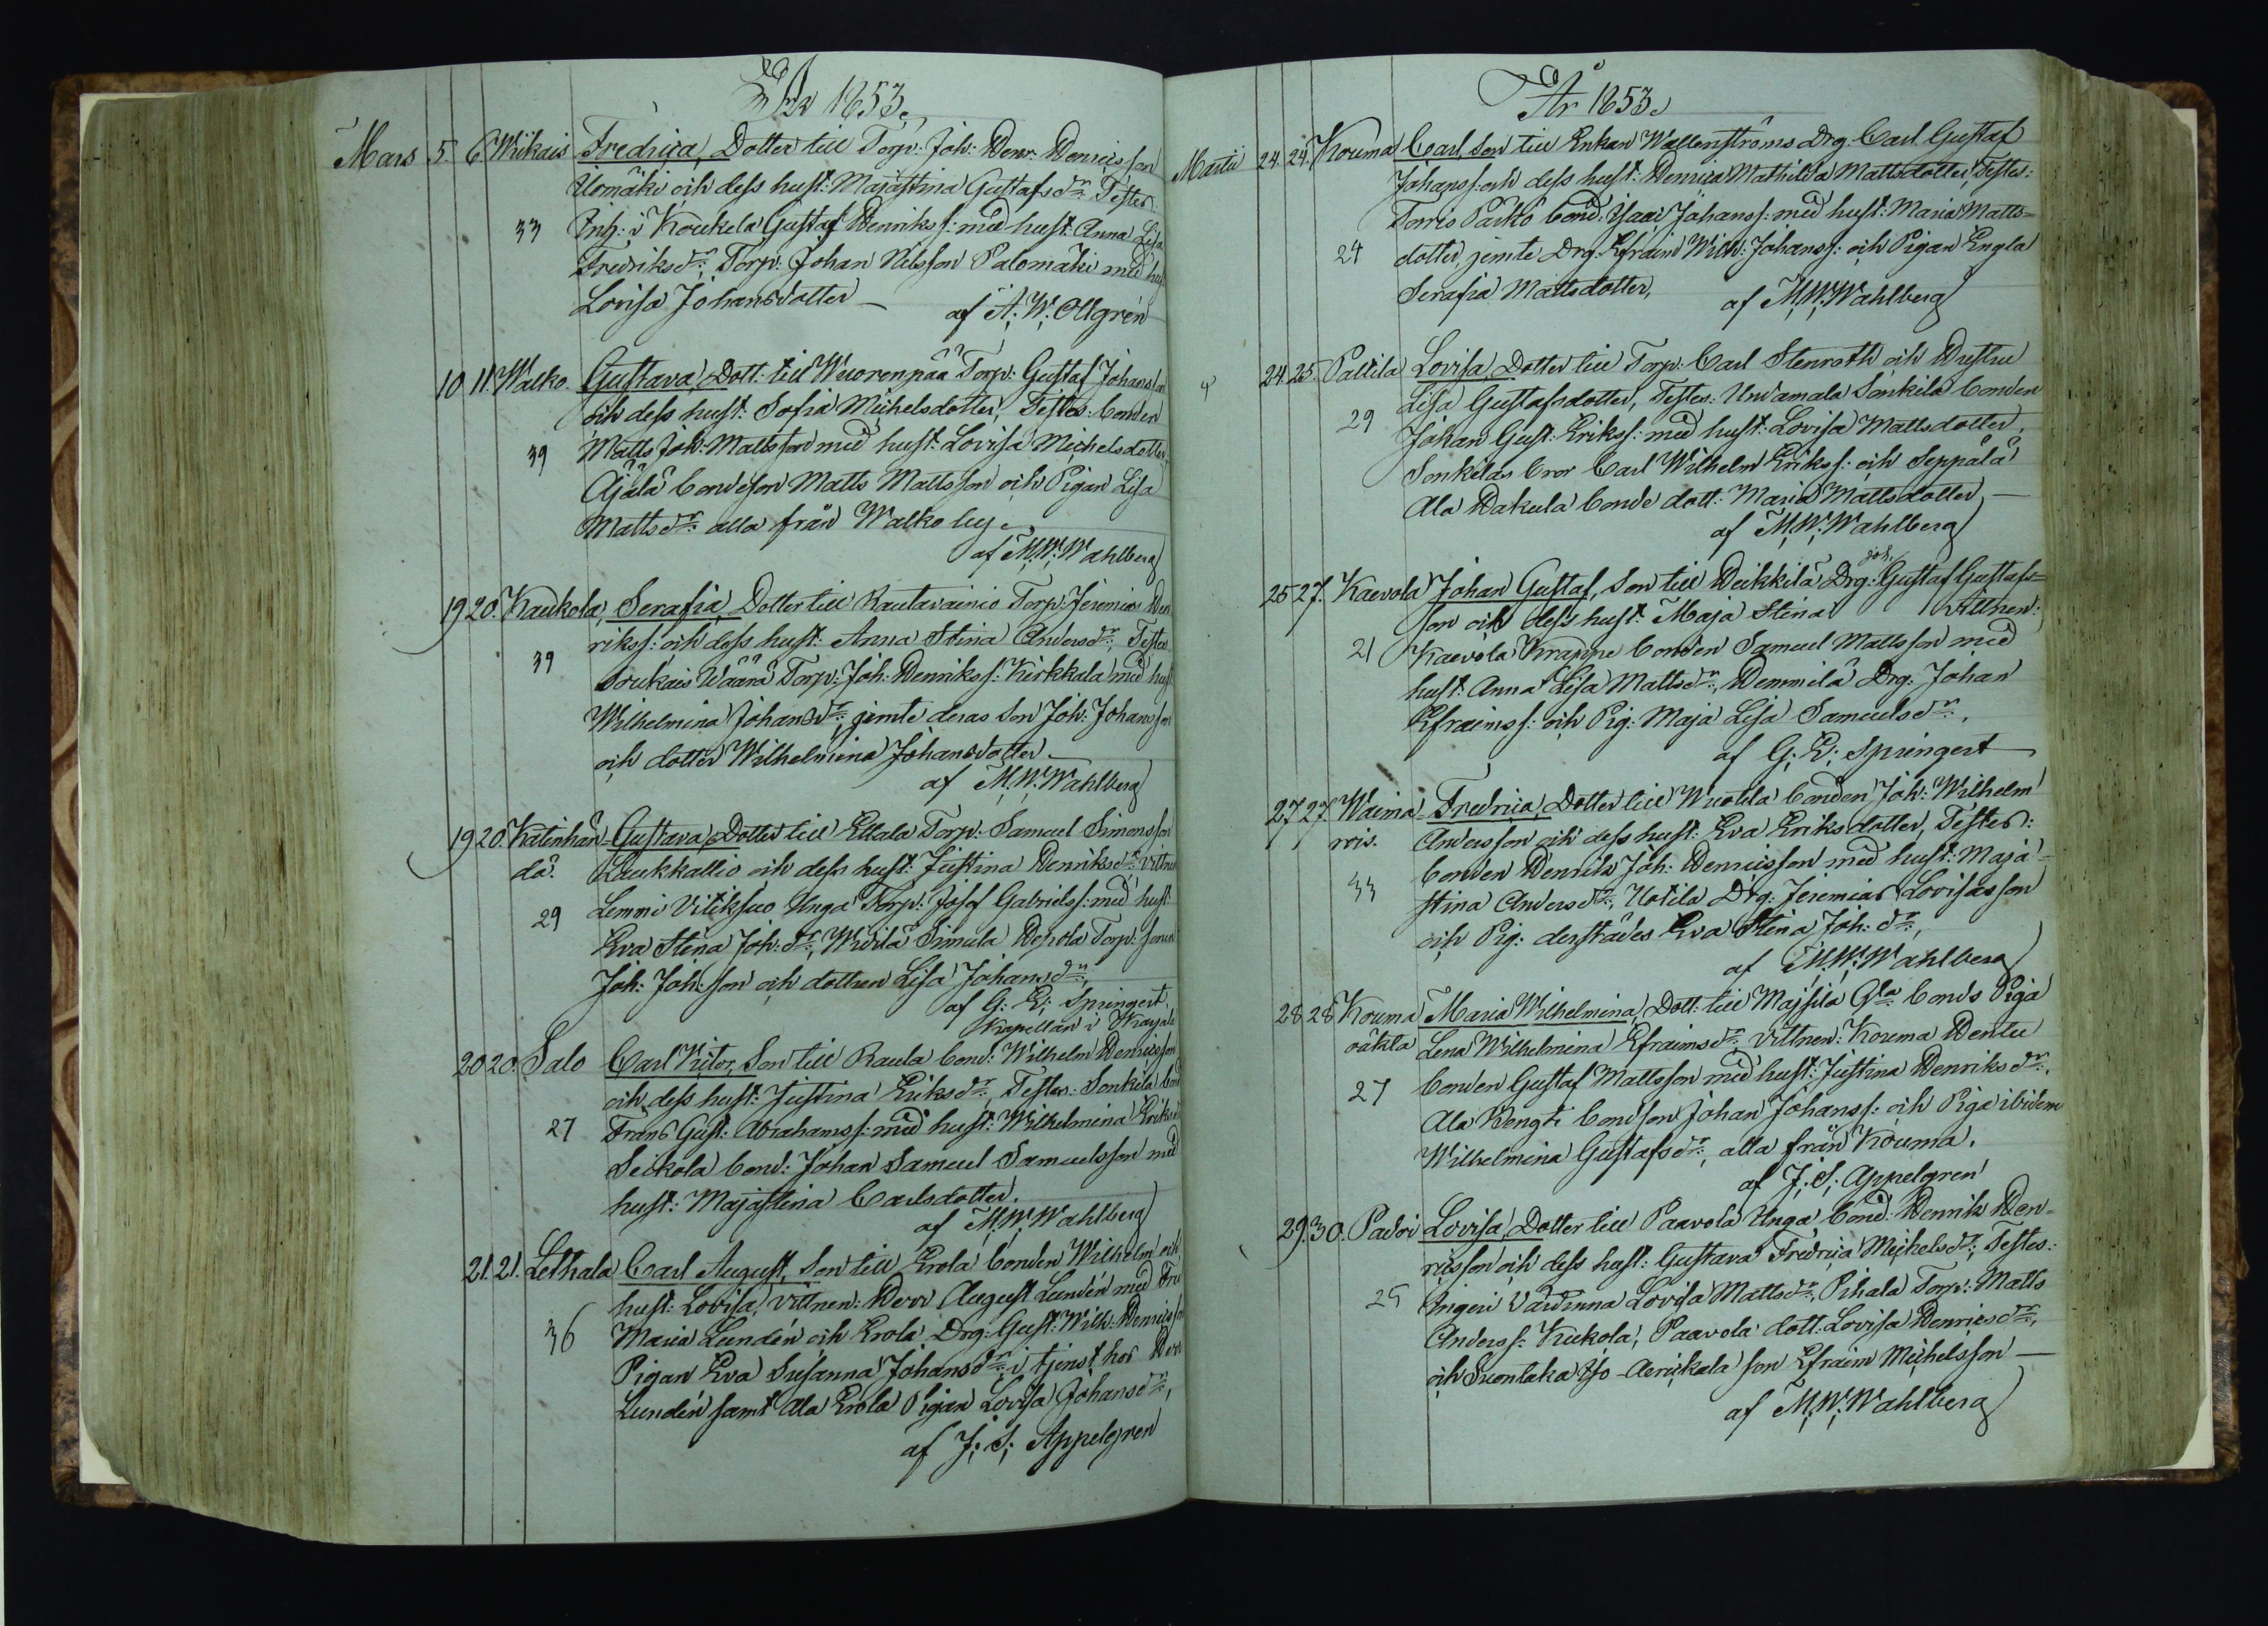 År 1853.
Mars 5. 6 Wikais Fredrica, Dotter till Torp: Joh: Henr: Henricsson
Uomäki och dess hust: Majastina Gustafsdr: Testes
33 Inh: i Koukela Gustaf Henrikss: med hust: Anna Lisa
Fredriksdr; Torp: Johan Nilsson Palomäki med hust
Lovisa Johansdotter
af A: W: Ollgrén
10 11. Walko. Gustava, Dott: till Wuorenpää Torp: Gustaf Johansson
och dess hust: Sofia Michelsdotter, Testes: bonden
39 Matts Joh: Mattsson med hust: Lovisa Michelsdotter
Äjälä bondeson Matts Mattsson och Pigan Lisa
Mattsdr: alla från Walko by.
af M: W: Wahlberg
19 20. Kaukola, Serafia, Dotter till Rautavainio Torp: Jeremias Hen
rikss: och dess hust: Anna Stina Andersdr; Testes
39 Soukais Wäärä Torp: Joh: Henrikss: Kirkkala med hust
Wilhelmina Johansdr; jemte deras son Joh: Johansson
och dotter Wilhelmina Johansdotter.
af M: W: Wahlberg
19 20. Katinhän- Gustava, Dotter till Ellala Torp: Samuel Simonsson
dä. Laukkallio och dess hust: Justina Henriksdr; vittnen
29 Lemmi Vitiksuo Unga Torp: Josef Gabrielss: med hust:
Eva Stina Joh: dr; Widilä Simula Hepola Torp: sonen
Joh: Joh: son och dottren Lisa Johansdr;
af G: E: Springert.
Kapellan i Karjala
20 20. Salo Carl Victor, Son till Raula bond: Wilhelm Henricsson
och dess hust: Justina Eriksdr: Testes: Sonkila bond
27 Frans Gust: Abrahamss: med hust: Wilhelmina Eriksdr
Seikola bond: Johan Samuel Samuelsson med
hust: Majastina Carlsdotter.
af M: W: Wahlberg
21. 21. Lethala Carl August, Son till Erola bonden Wilhelm och
hust: Lovisa, vittnen: Herr August Lundén med Fru
36 Maria Lundén och Erola Drg: Gust: Wilh: Henricsson
Pigan Eva Susanna Johansdr: i tjenst hos Herr
Lundén samt Ala Erola Pigan Lovisa Johansdr;
af J: S: Appelgren
År 1853.
Martii 24. 24. Kouma Carl, Son till Enkan Wallenströms Drg. Carl Gustaf
Johanss: och dess hust: Henrica Mathilda Mattsdotter, Testes:
Torris Paiko bond: Isaac Johanss: med hust: Maria Matts-
24 dotter, jemte Drg: Efraim Wilh: Johanss: och Pigan Engla
Serafia Mattsdotter,
af M: W: Wahlberg
24. 25. Palila Lovisa, Dotter till Torp: Carl Stenroth och Hustru
Lisa Gustafsdotter, Testes: Undamala Sonkila bonden
29 Johan Gust: Erikss: med hust: Lovisa Mattsdotter,
Sonkilas bror Carl Wilhelm Erikss: och Seppälä
Ala Hakula bonde dott: Maria Mattsdotter,
af M: W: Wahlberg
25 27. Kaevola Johan Gustaf, Son till Heikkilä Drg: Joh. Gustaf Gustafs-
son och dess hust: Maja Stina vittnen:
21 Kaevola Krappe bonden Samuel Mattsson med
hust: Anna Lisa Mattsdr, Hemmilä Drg: Johan
Efraimss: och Pig: Maja Lisa Samuelsdr:,
af G: E: Springert
27 27. Waima- Fredrica, Dotter till Wuotila bonden Joh: Wilhelm
rois. Andersson och dess hust: Eva Eriksdotter, Testes:
33 bonden Henrik Joh: Henricsson med hust: Maja-
stina Andersdr: Uotila Drg: Jeremias Lovisasson
och Pig: derstädes Eva Stina Joh: dr:,
af M: W: Wahlberg
28 28 Kouma Maria Wilhelmina, Dott: till Majsila Gla bonds Piga
oäkta Lena Wilhelmina Efraimsdr; vittnen: Kouma Hentu
27 bonden Gustaf Mattsson med hust: Justina Henriksdr;
Ala Hengti bondson Johan Johanss: och Piga ibidem
Wilhelmina Gustafsdr:, alla från Kouma.
af J: S: Appelgren
29. 30. Padoi Lovisa, Dotter till Paavola Unga bond: Henrik Hen-
ricsson och dess hust: Gustava Fredrica Michelsdr; Testes:
25 Ingeri Värdinna Lovisa Mattsdr:, Pihala Torp: Matts
Anderss: Kukola, Paavola dott: Lovisa Henricsdr:,
och Suontaka Iso-Aerickala son Efraim Michelsson
af M: W: Wahlberg